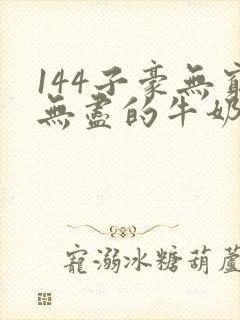 144子豪無窮
無盡的牛奶
寵溺冰糖葫蘆